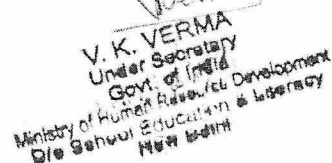 V. K. VERMA
Under Secretary
Govt. of India
Ministry of Human Resource Development
D/o School Education & Literacy
New Delhi